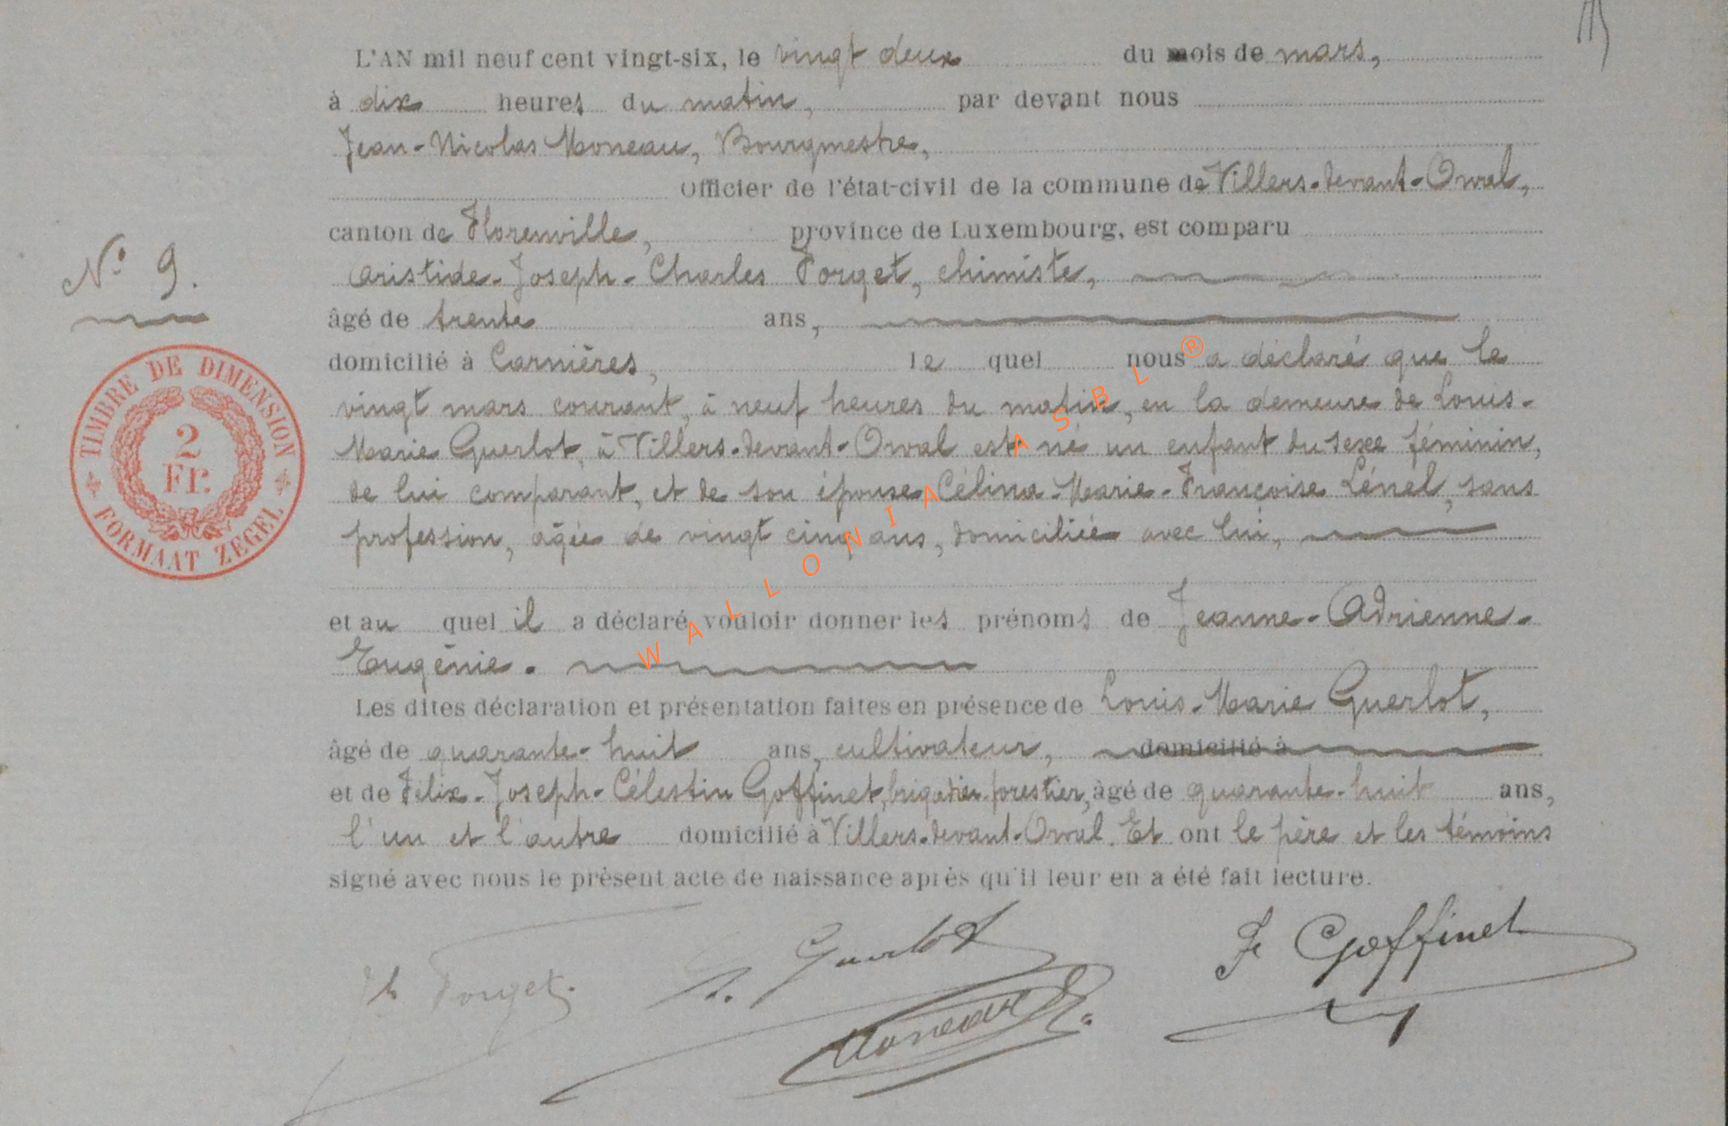 L'AN mil neuf cent vingt-six, le vingt deux du mois de mars,
à dix heures du matin, par devant nous
Jean-Nicolas Moneau, Bourgmestre,
Officier de l'état-civil de la commune de Villers-devant-Orval,
canton de Florenville, province de Luxembourg, est comparu
Aristide-Joseph-Charles Forget, chimiste,
N° 9.
âgé de trente ans,
domicilié à Carnières, le quel nous a déclaré que le
vingt mars courant, à neuf heures du matin, en la demeure de Louis-
Marie Guerlot, à Villers-devant-Orval est né un enfant du sexe féminin,
de lui comparant, et de son épouse Célina-Marie-Françoise Lénel, sans
profession, agée de vingt cinq ans, domiciliée avec lui,
et au quel il a déclaré vouloir donner les prénoms de Jeanne-Adrienne-
Eugénie.
Les dites déclaration et présentation faites en présence de Louis-Marie Guerlot,
âgé de quarante-huit ans, cultivateur, domicilié à
et de Félix-Joseph-Célestin Goffinet, brigadier-forestier, âgé de quarante-huit ans,
l'un et l'autre domicilié à Villers-devant-Orval. Et ont le père et les témoins
signé avec nous le présent acte de naissance après qu'il leur en a été fait lecture.
Forget
Guerlot
F Goffinet
Moneau
TIMBRE DE DIMENSION
2
Fr.
FORMAAT ZEGEL
WALLONIA ASBL ®